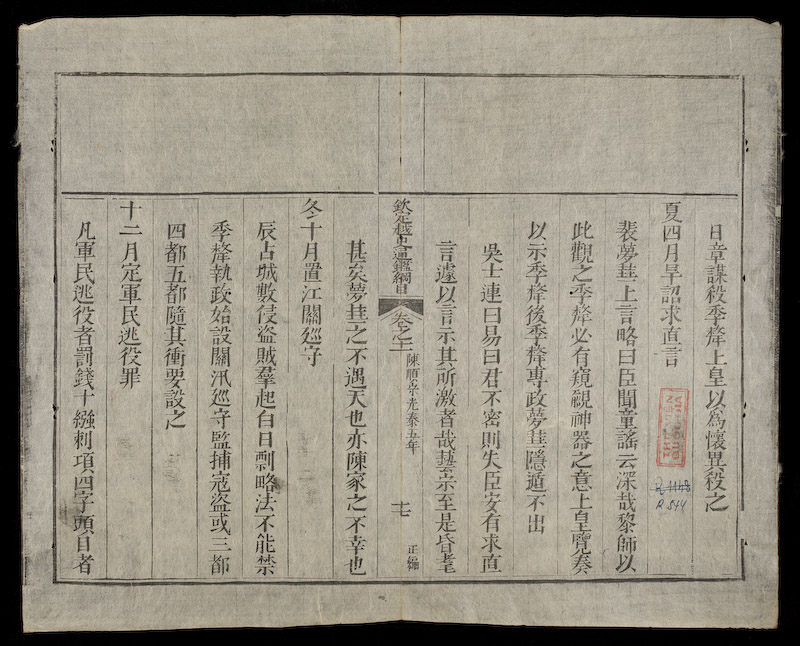 日章謀殺季犛上皇以為懷異殺之
夏四月旱詔求直言
裴夢葩上言略曰臣聞童謠云深哉黎師以
此觀之季犛必有窺覦神器之意上皇覽奏
以示季犛後季犛專政夢葩隱遁不出
吳士連曰易曰君不密則失臣安有求直
言遽以言示其所激者哉藝宗至是昏耄
欽定越史通鑑綱目
卷之十一
陳順宗光泰五年
十七
正編
甚矣夢葩之不遇天也亦陳家之不幸也
冬十月置江關巡守
辰占城數侵盜賊羣起白日剽略法不能禁
季犛執政始設關汛巡守監捕寇盜或三都
四都五都隨其衝要設之
十二月定軍民逃役罪
凡軍民逃役者罰錢十繦刺項四字頭目者
R.544